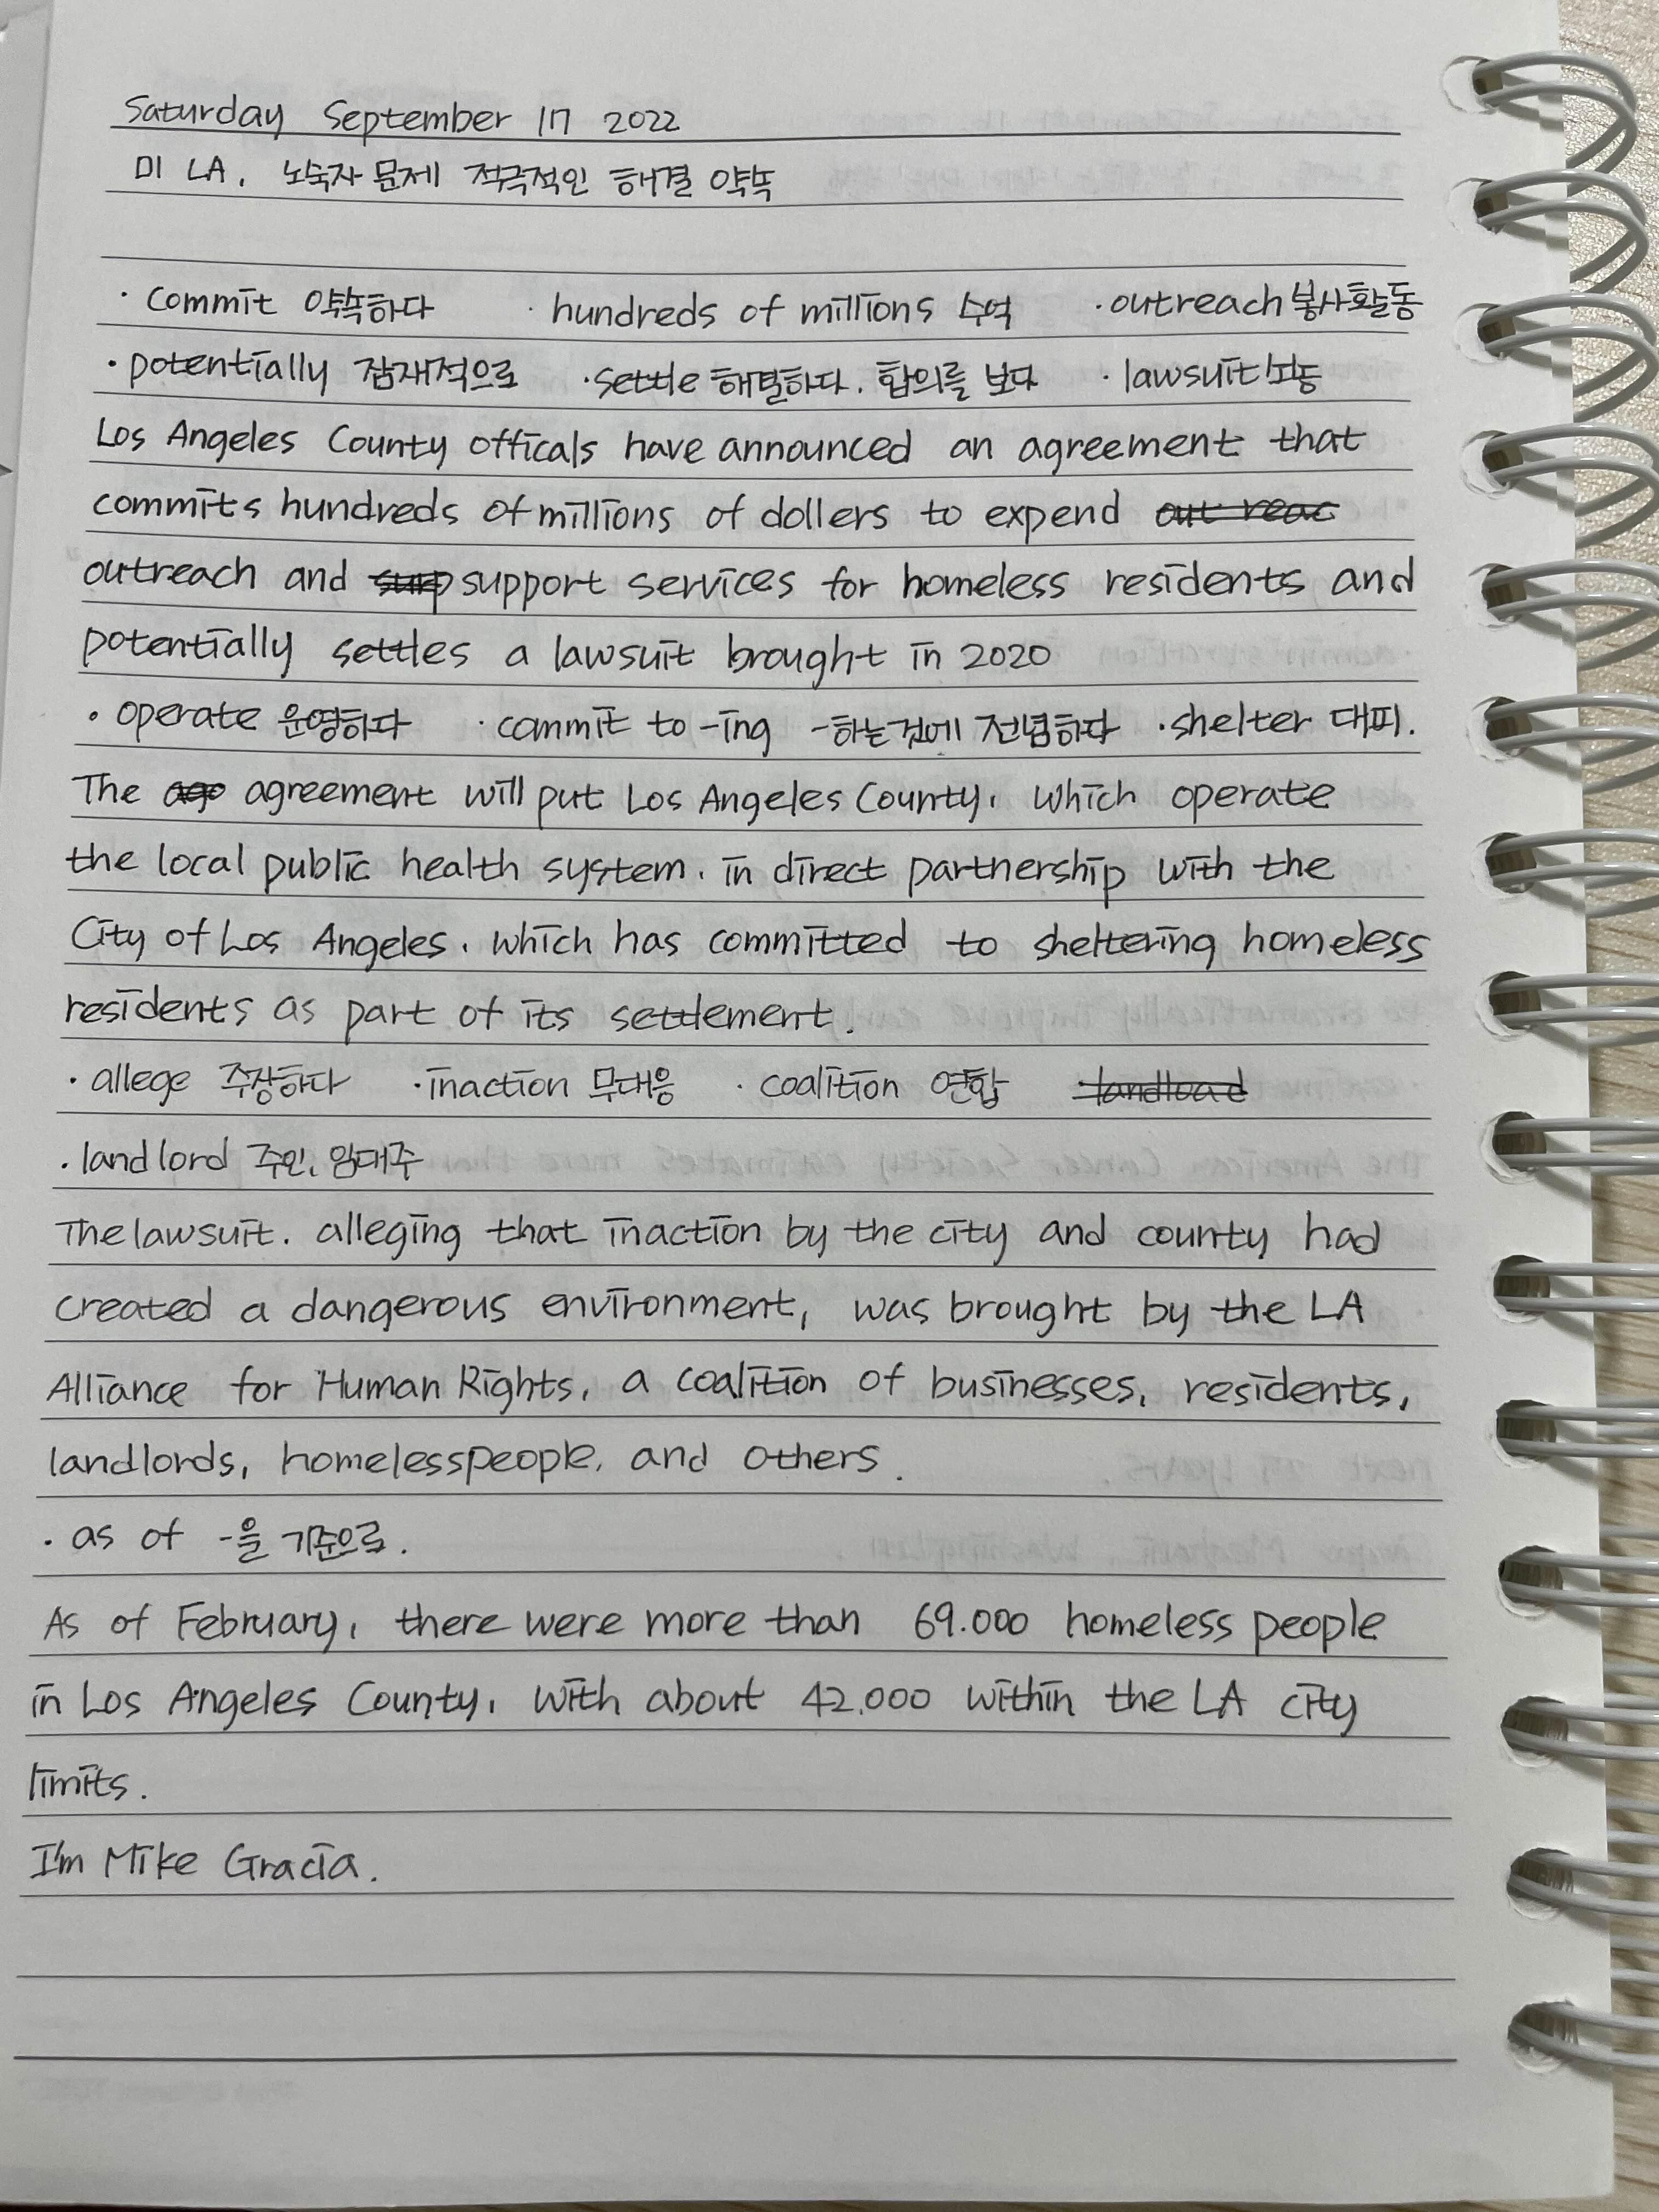 Saturday September 17 2022
미 LA, 노숙자 문제 적극적인 해결 약속
· commit 약속하다 · hundreds of millions 수억 · outreach 봉사활동
· potentially 잠재적으로 · settle 해결하다, 합의를 보다 · lawsuit 소송
Los Angeles County officals have announced an agreement that
commits hundreds of millions of dollers to expend out reac
outreach and surp support services for homeless residents and
potentially settles a lawsuit brought in 2020
· operate 운영하다 · commit to -ing -하는 것에 전념하다 · shelter 대피.
The ago agreement will put Los Angeles County, which operate
the local public health system, in direct partnership with the
City of Los Angeles, which has committed to sheltering homeless
residents as part of its settlement.
· allege 주장하다 · inaction 무대응 · coalition 연합 landload
· landlord 주인, 임대주
The lawsuit, alleging that inaction by the city and county had
created a dangerous environment, was brought by the LA
Alliance for Human Rights, a coalition of businesses, residents,
landlords, homelesspeople, and others.
· as of -을 기준으로.
As of February, there were more than 69.000 homeless people
in Los Angeles County, with about 42.000 within the LA city
limits.
I'm Mike Gracia.